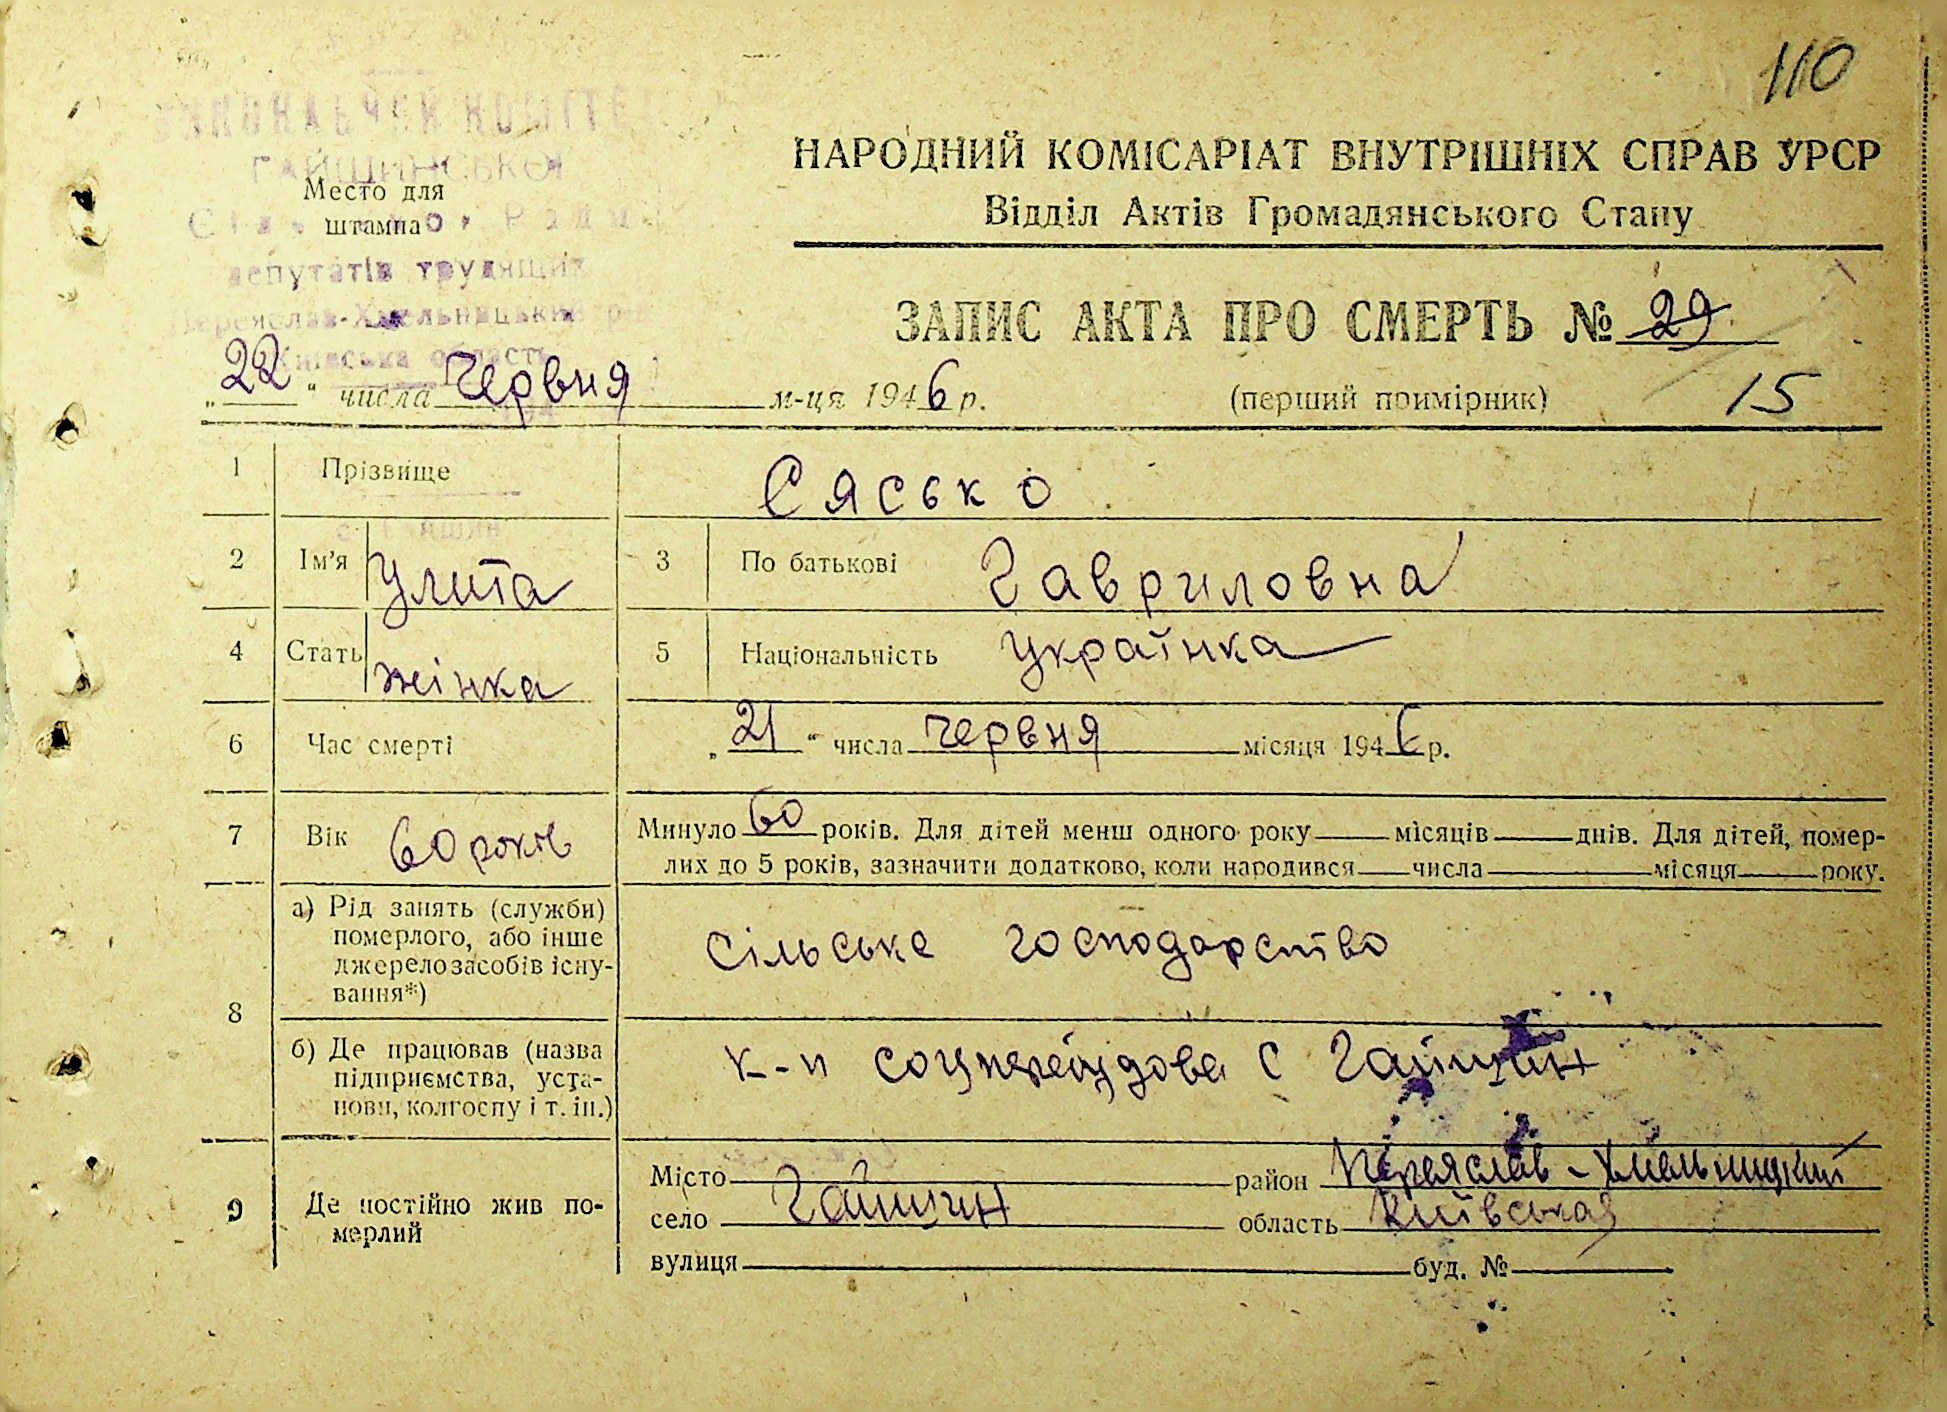 110
ВИКОНАВЧИЙ КОМІТЕ
ГАЙШИНСЬКОЇ
Место для
штампа
депутатів трудящих
Переяслав-Хмельницький р
Київська область
НАРОДНИЙ КОМІСАРІАТ ВНУТРІШНІХ СПРАВ УРСР
Відділ Актів Громадянського Стану
ЗАПИС АКТА ПРО СМЕРТЬ № 29
„22“ числа Червня м-ця 1946 р. (перший примірник) 15
1 Прізвище Сясько
2 Ім'я Улита 3 По батькові Гавриловна
4 Стать жінка 5 Національність Українка
6 Час смерті „21“ числа червня місяця 1946 р.
7 Вік 60 років Минуло 60 років. Для дітей менш одного року місяців днів. Для дітей, помер-
лих до 5 років, зазначити додатково, коли народився числа місяця року.
8 а) Рід занять (служби)
померлого, або інше
джерело засобів існу-
вання*)
сільське господарство
б) Де працював (назва
підприємства, уста-
нови, колгоспу і т. ін.)
к-п с Гайшин
9 Де постійно жив по-
мерлий
Місто район Переяслав-Хмельницкий
село Гайшин область Київська
вулиця буд. №